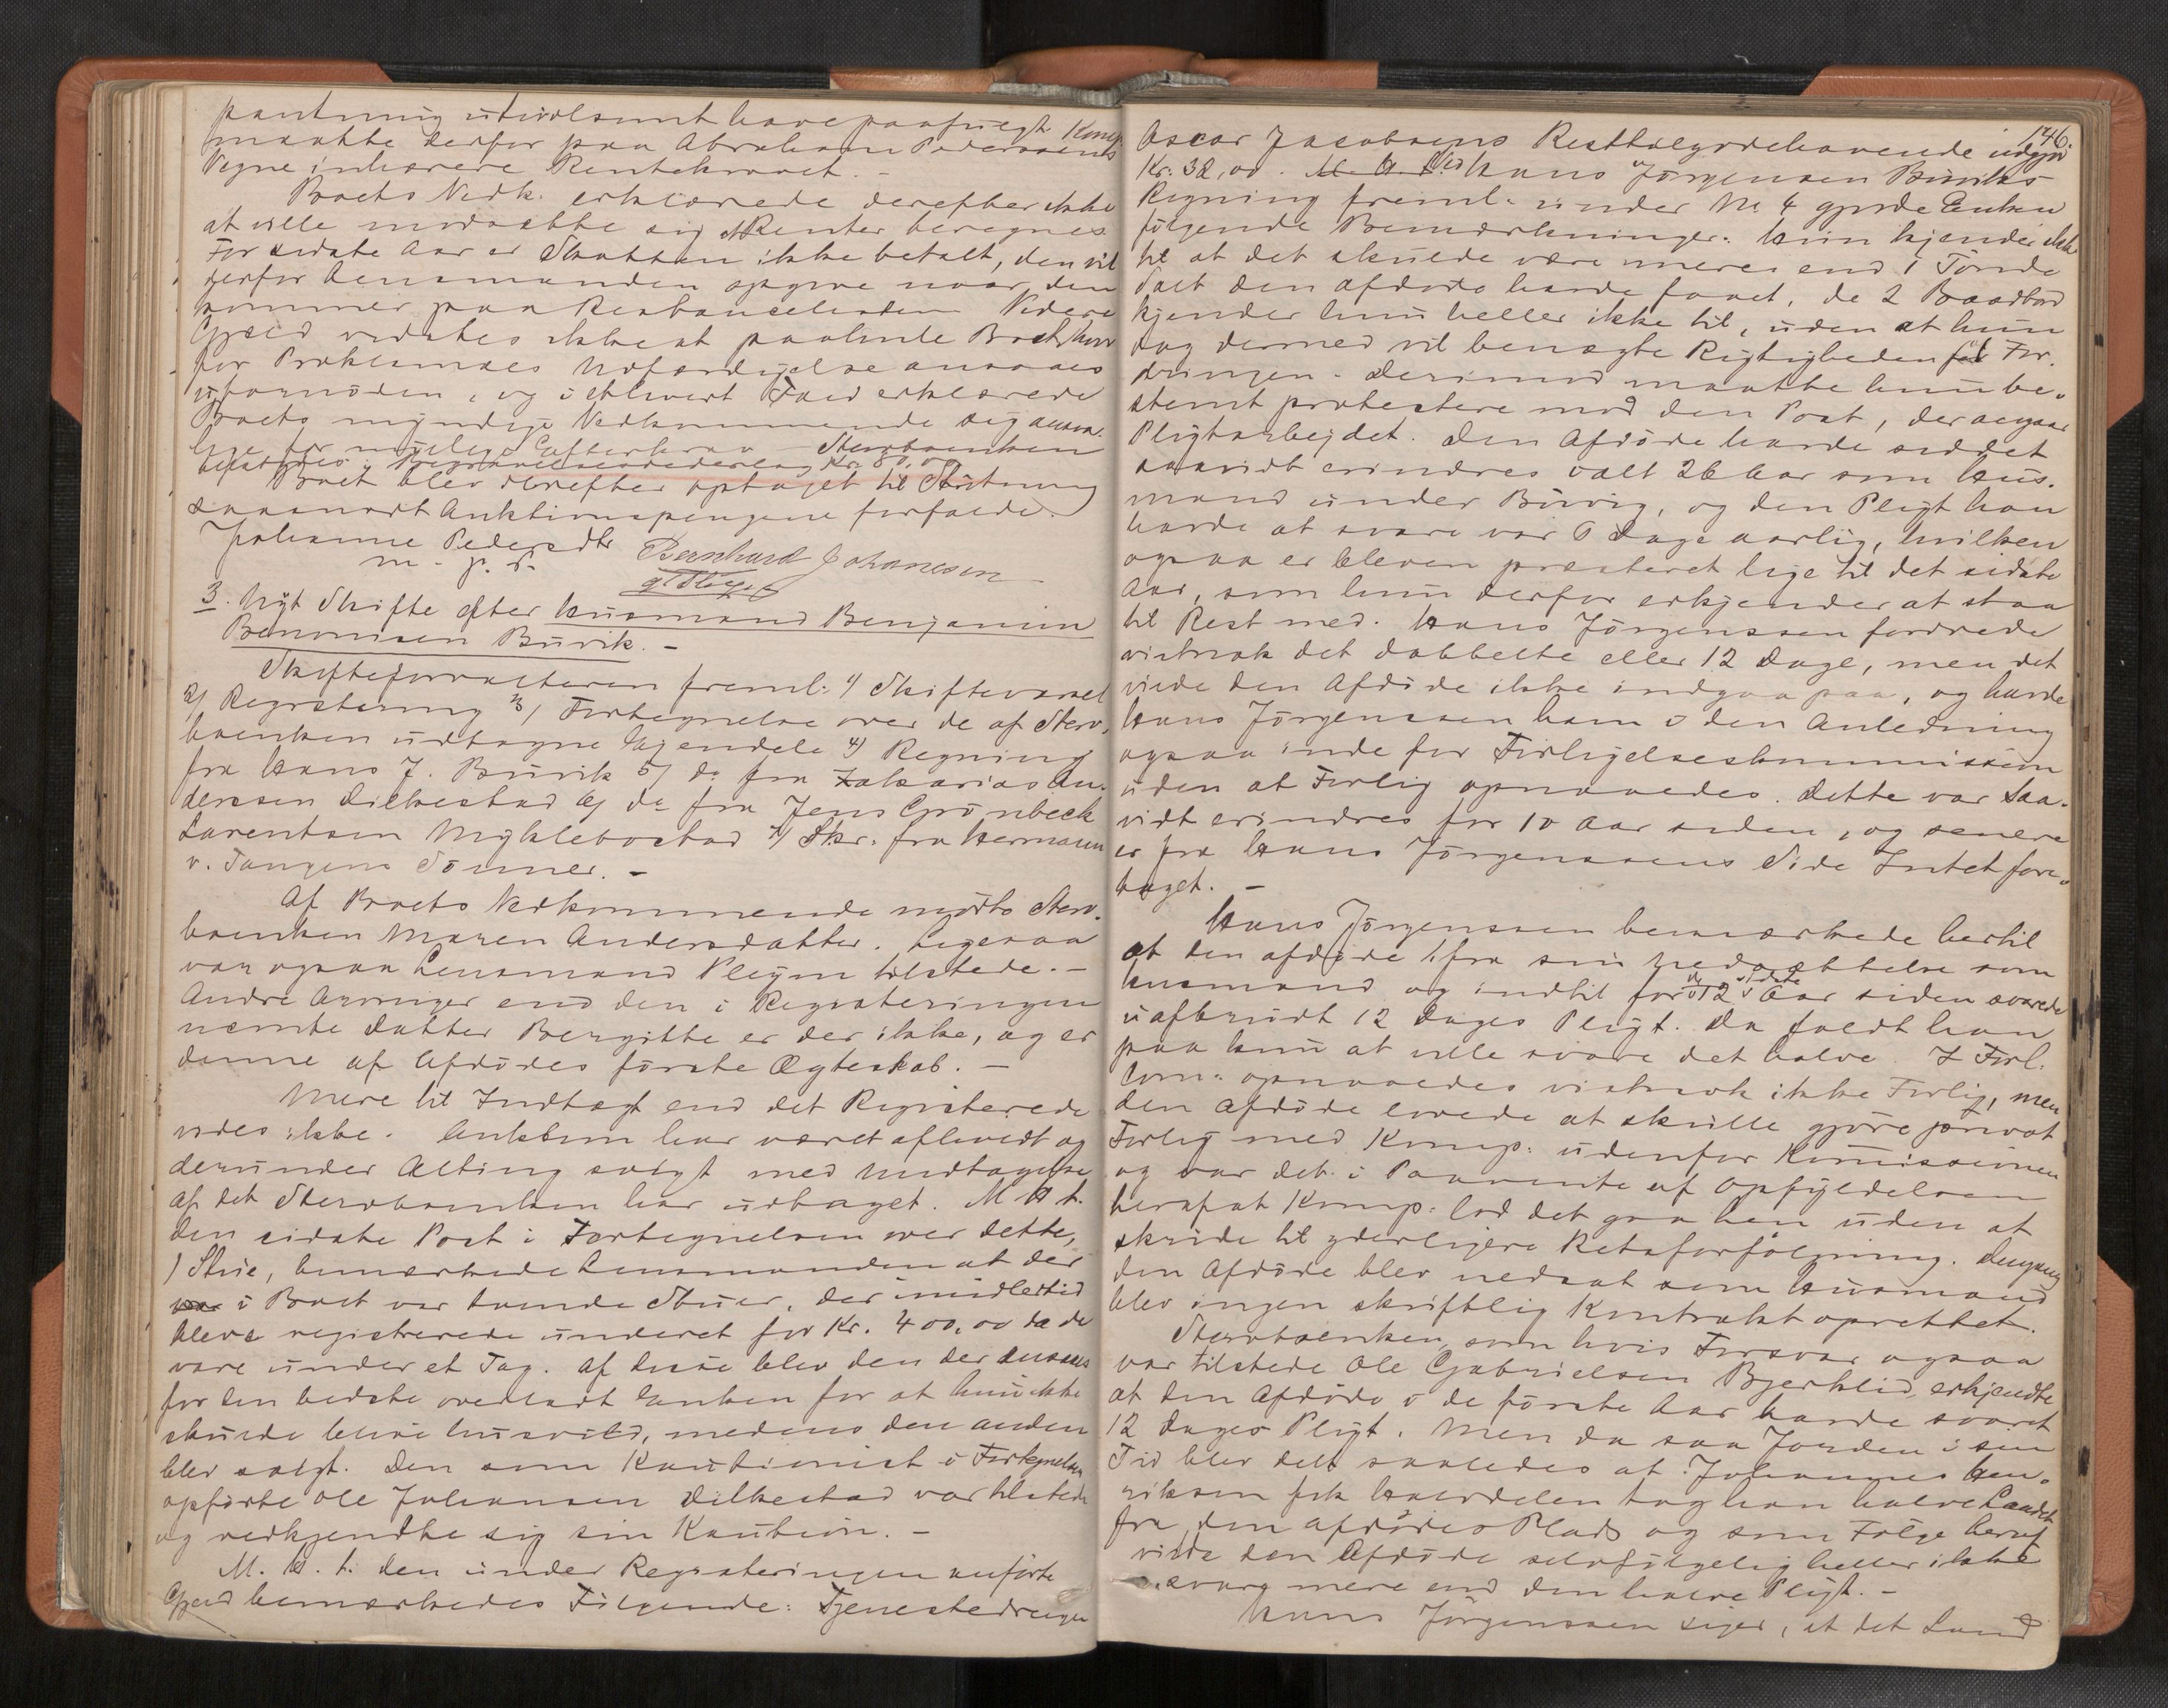 pantning utvivlsomt have paafulgt. Komp.
maatte derfor paa Abraham Pedersens
Vegne inhærere Rentekravet. -
Boets Vedk. erklærede derefter ikke
at ville modsætte sig at Renter beregnes.
For sidste Aar er Skatten ikke betalt, den vil
derfor Lensmanden opgive naar den
kommer paa Restancelisten. Videre
Gjæld vidstes ikke at paahvile Boet, hvor
for Proklamaes Udfærdigelse ansaaes
ufornøden, og i ethvert Fald erklærede
Boets myndige Vedkommende sig ansva-
lige for mulige Efterkrav. Stervboenken
Begravelses Kr. 80,00
Boet blev derefter optaget til Slutning
saasnart Auktionspengene forfalde.
Johanne Pedersdtr Bernhard Johanesen
m. p. P.
3. Nyt Skifte efter Husmand Benjamin
Benonisen Buvik. -
Skifteforvalteren freml. 1) Skiftevarsel
2) Registrering 3) Fortegnelse over de af Sterv-
boenken udtagne Ejendele 4) Regning
fra Hans J. Buvik 5) do fra Zakarias An-
derssen Dilkestad 6) do fra Jens Grønbeck
Larentsen Myklebostad 7) Skr. fra Hermann
v. Tangens Sønner. -
Af Boets Vedkommende mødte Sterv-
boenken Maren Andersdatter. Ligesaa
var ogsaa Lensmand Pleym tilstede. -
Andre Arvinger end den i Registreringen
nævnte Datter Bergitte er der ikke, og er
denne af Afdødes første Ægteskab. -
Mere til Indtægt end det Registrerede
vides ikke. Auktion har været afholdt og
derunder Alting solgt med Undtagelse
af det Stervboenken har udtaget. M. H. t.
den sidste Post i Fortegnelsen over dette,
1 Stue, bemærkede Lensmanden at der
i Boet var tvende Stuer, der imidlertid
bleve registrerede underet for Kr. 400,00 da de
vare under et Tag. Af disse blev den der ansaaes
for den bedste overladt Enken for at hun ikke
skulde blive husvild, medens den anden
blev solgt. Den som Kautionist i Fortegnelsen
opførte Ole Johansen Dilkestad var tilstede
og vedkjendte sig sin Kaution. -
M. H. t. den under Registreringen anførte
Gjæld bemærkedes Følgende: Tjenestedrengen
146.
Oscar Jacobsens Resttilgodehavende udgjør
Kr. 32,00. Ved Hans Jørgensen Buviks
Regning freml. under No 4 gjorde Enken
følgende Bemærkninger: Hun kjender ikke
til at det skulde være mere end 1 Tønde
Salt den afdøde havde faaet, de 2 Baadbord
kjender hun heller ikke til, uden at hun
dog dermed vil benægte Rigtigheden af For-
dringen. Derimod maatte hun be-
stemt protestere mod den Post, der angaar
Pligtarbejdet. Den Afdøde havde siddet
saavidt erindres valt 26 Aar som Hus-
mand under Buvig, og den Pligt han
havde at svare var 6 Dage aarlig, hvilken
ogsaa er bleven præsteret lige til det sidste
Aar, som hun derfor erkjender at staa
til Rest med. Hans Jørgenssen fordrede
vistnok det dobbelte eller 12 Dage, men det
vilde den Afdøde ikke indgaa paa, og havde
Hans Jørgenssen ham i den Anledning
ogsaa inde for Forligelseskommission
uden at Forlig opnaaedes. Dette var saa-
vidt erindres for 10 Aar siden, og senere
er fra Hans Jørgenssens Side Intet fore-
taget. -
Hans Jørgenssen bemærkede hertil
at den afdøde ifra sin nedsættelse som
husmand og indtil for de 12 sidste Aar siden svarede
uafbrudt 12 Dages Pligt. Da faldt han
paa kun at ville svare det halve. I Forl.
Com: opnaaedes vistnok ikke Forlig, men
den Afdøde lovede at skulle gjøre privat
Forlig med Komp: udenfor Kommissionen
og var det i Paavente af Opfyldelsen
heraf at Komp: lod det gaa hen uden at
skride til yderligere Retsforfølgning. Dengang
den Afdøde blev nedsat som Husmand
blev ingen skriftlig Kontrakt oprettet.
Stervboenken, som hvis Forsvar ogsaa
var tilstede Ole Gabrielsen Bjerklid, erkjendte
at den Afdøde i de første Aar havde svaret
12 Dages Pligt. Men da saa Jorden i sin
Tid blev delt saaledes at Johannes Hen-
riksen fik Halvdelen tog han halve Landet
fra den afdødes Plads og som Følge heraf
vilde den Afdøde selvfølgelig heller ikke
svare mere end den halve Pligt. -
Hans Jørgenssen siger, at det Land